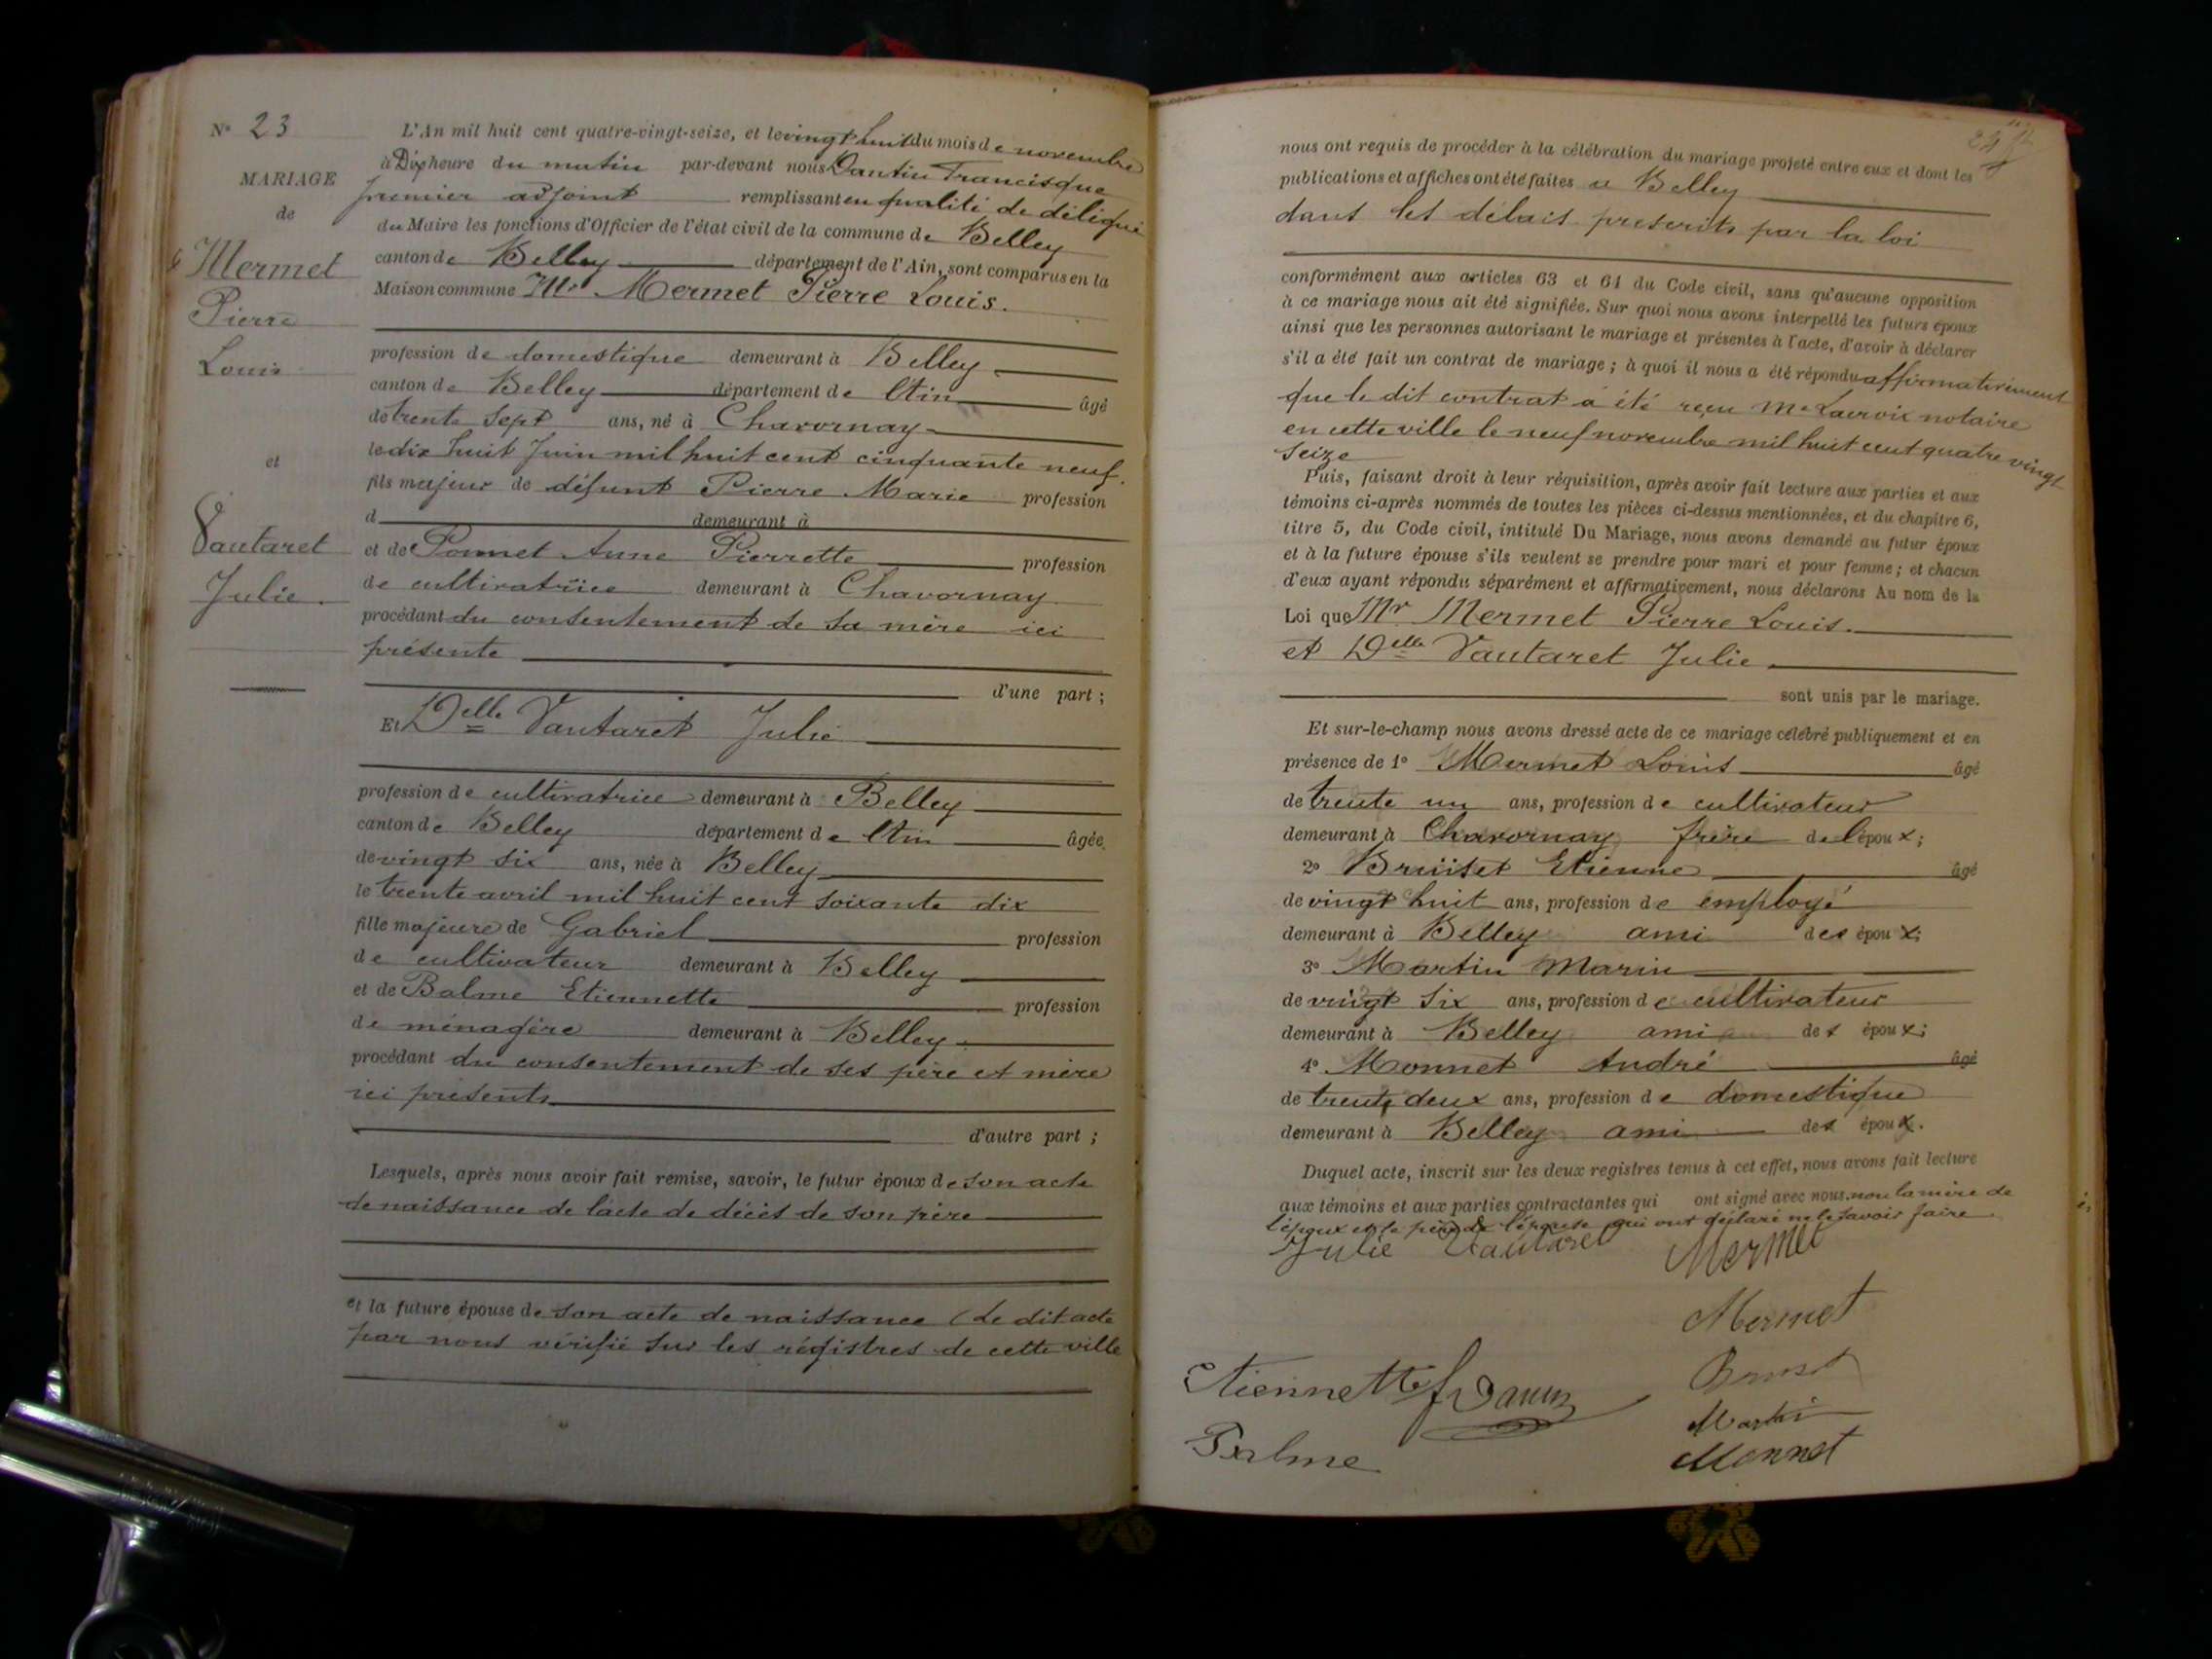 N° 23
MARIAGE
de
Mermet
Pierre
Louis
et
Vautaret
Julie.
L'An mil huit cent quatre-vingt-seize, et le vingt huit du mois de novembre
à Dix heure du matin par-devant nous Dantin Francisque
premier adjoint remplissant en qualité de délégué
du Maire les fonctions d'Officier de l'état civil de la commune de Belley
canton de Belley département de l'Ain, sont comparus en la
Maison commune Mr Mermet Pierre Louis.
profession de domestique demeurant à Belley
canton de Belley département de l'Ain âgé
de trente sept ans, né à Chavornay
le dix huit Juin mil huit cent cinquante neuf.
fils majeur de défunt Pierre Marie profession
d demeurant à
et de Ponnet Anne Pierrette profession
de cultivatrice demeurant à Chavornay
procédant du consentement de sa mère ici
présente
d'une part ;
Et Delle Vautaret Julie
profession de cultivatrice demeurant à Belley
canton de Belley département de l'Ain âgée
de vingt six ans, née à Belley
le trente avril mil huit cent soixante dix
fille majeure de Gabriel profession
de cultivateur demeurant à Belley
et de Balme Etiennette profession
de ménagère demeurant à Belley
procédant du consentement de ses père et mère
ici présents
d'autre part ;
Lesquels, après nous avoir fait remise, savoir, le futur époux de son acte
de naissance de l'acte de décès de son père
et la future épouse de son acte de naissance (le dit acte
par nous vérifié sur les régistres de cette ville
nous ont requis de procéder à la célébration du mariage projeté entre eux et dont les
publications et affiches ont été faites à Belley
dans les délais prescrits par la loi
conformément aux articles 63 et 64 du Code civil, sans qu'aucune opposition
à ce mariage nous ait été signifiée. Sur quoi nous avons interpellé les futurs époux
ainsi que les personnes autorisant le mariage et présentes à l'acte, d'avoir à déclarer
s'il a été fait un contrat de mariage ; à quoi il nous a été répondu affirmativement
que le dit contrat a été reçu Me Lacroix notaire
en cette ville le neuf novembre mil huit cent quatre vingt
seize
Puis, faisant droit à leur réquisition, après avoir fait lecture aux parties et aux
témoins ci-après nommés de toutes les pièces ci-dessus mentionnées, et du chapitre 6,
titre 5, du Code civil, intitulé Du Mariage, nous avons demandé au futur époux
et à la future épouse s'ils veulent se prendre pour mari et pour femme ; et chacun
d'eux ayant répondu séparément et affirmativement, nous déclarons Au nom de la
Loi que Mr Mermet Pierre Louis.
et Delle Vautaret Julie
sont unis par le mariage.
Et sur-le-champ nous avons dressé acte de ce mariage célébré publiquement et en
présence de 1° Mermet Louis âgé
de trente un ans, profession de cultivateur
demeurant à Chavornay frère de l'époux ;
2° Bruiset Etienne âgé
de vingt huit ans, profession de employé
demeurant à Belley ami des époux ;
3° Martin Marin
de vingt six ans, profession de cultivateur
demeurant à Belley ami des époux ;
4° Monnet André âgé
de trente deux ans, profession de domestique
demeurant à Belley ami des époux.
Duquel acte, inscrit sur les deux registres tenus à cet effet, nous avons fait lecture
aux témoins et aux parties contractantes qui ont signé avec nous non la mère de
l'époux et le père de l'épouse qui ont déclaré ne le savoir faire
Julie Vautaret Mermet
Mermet
Etiennette
Martin
Balme
Monnet